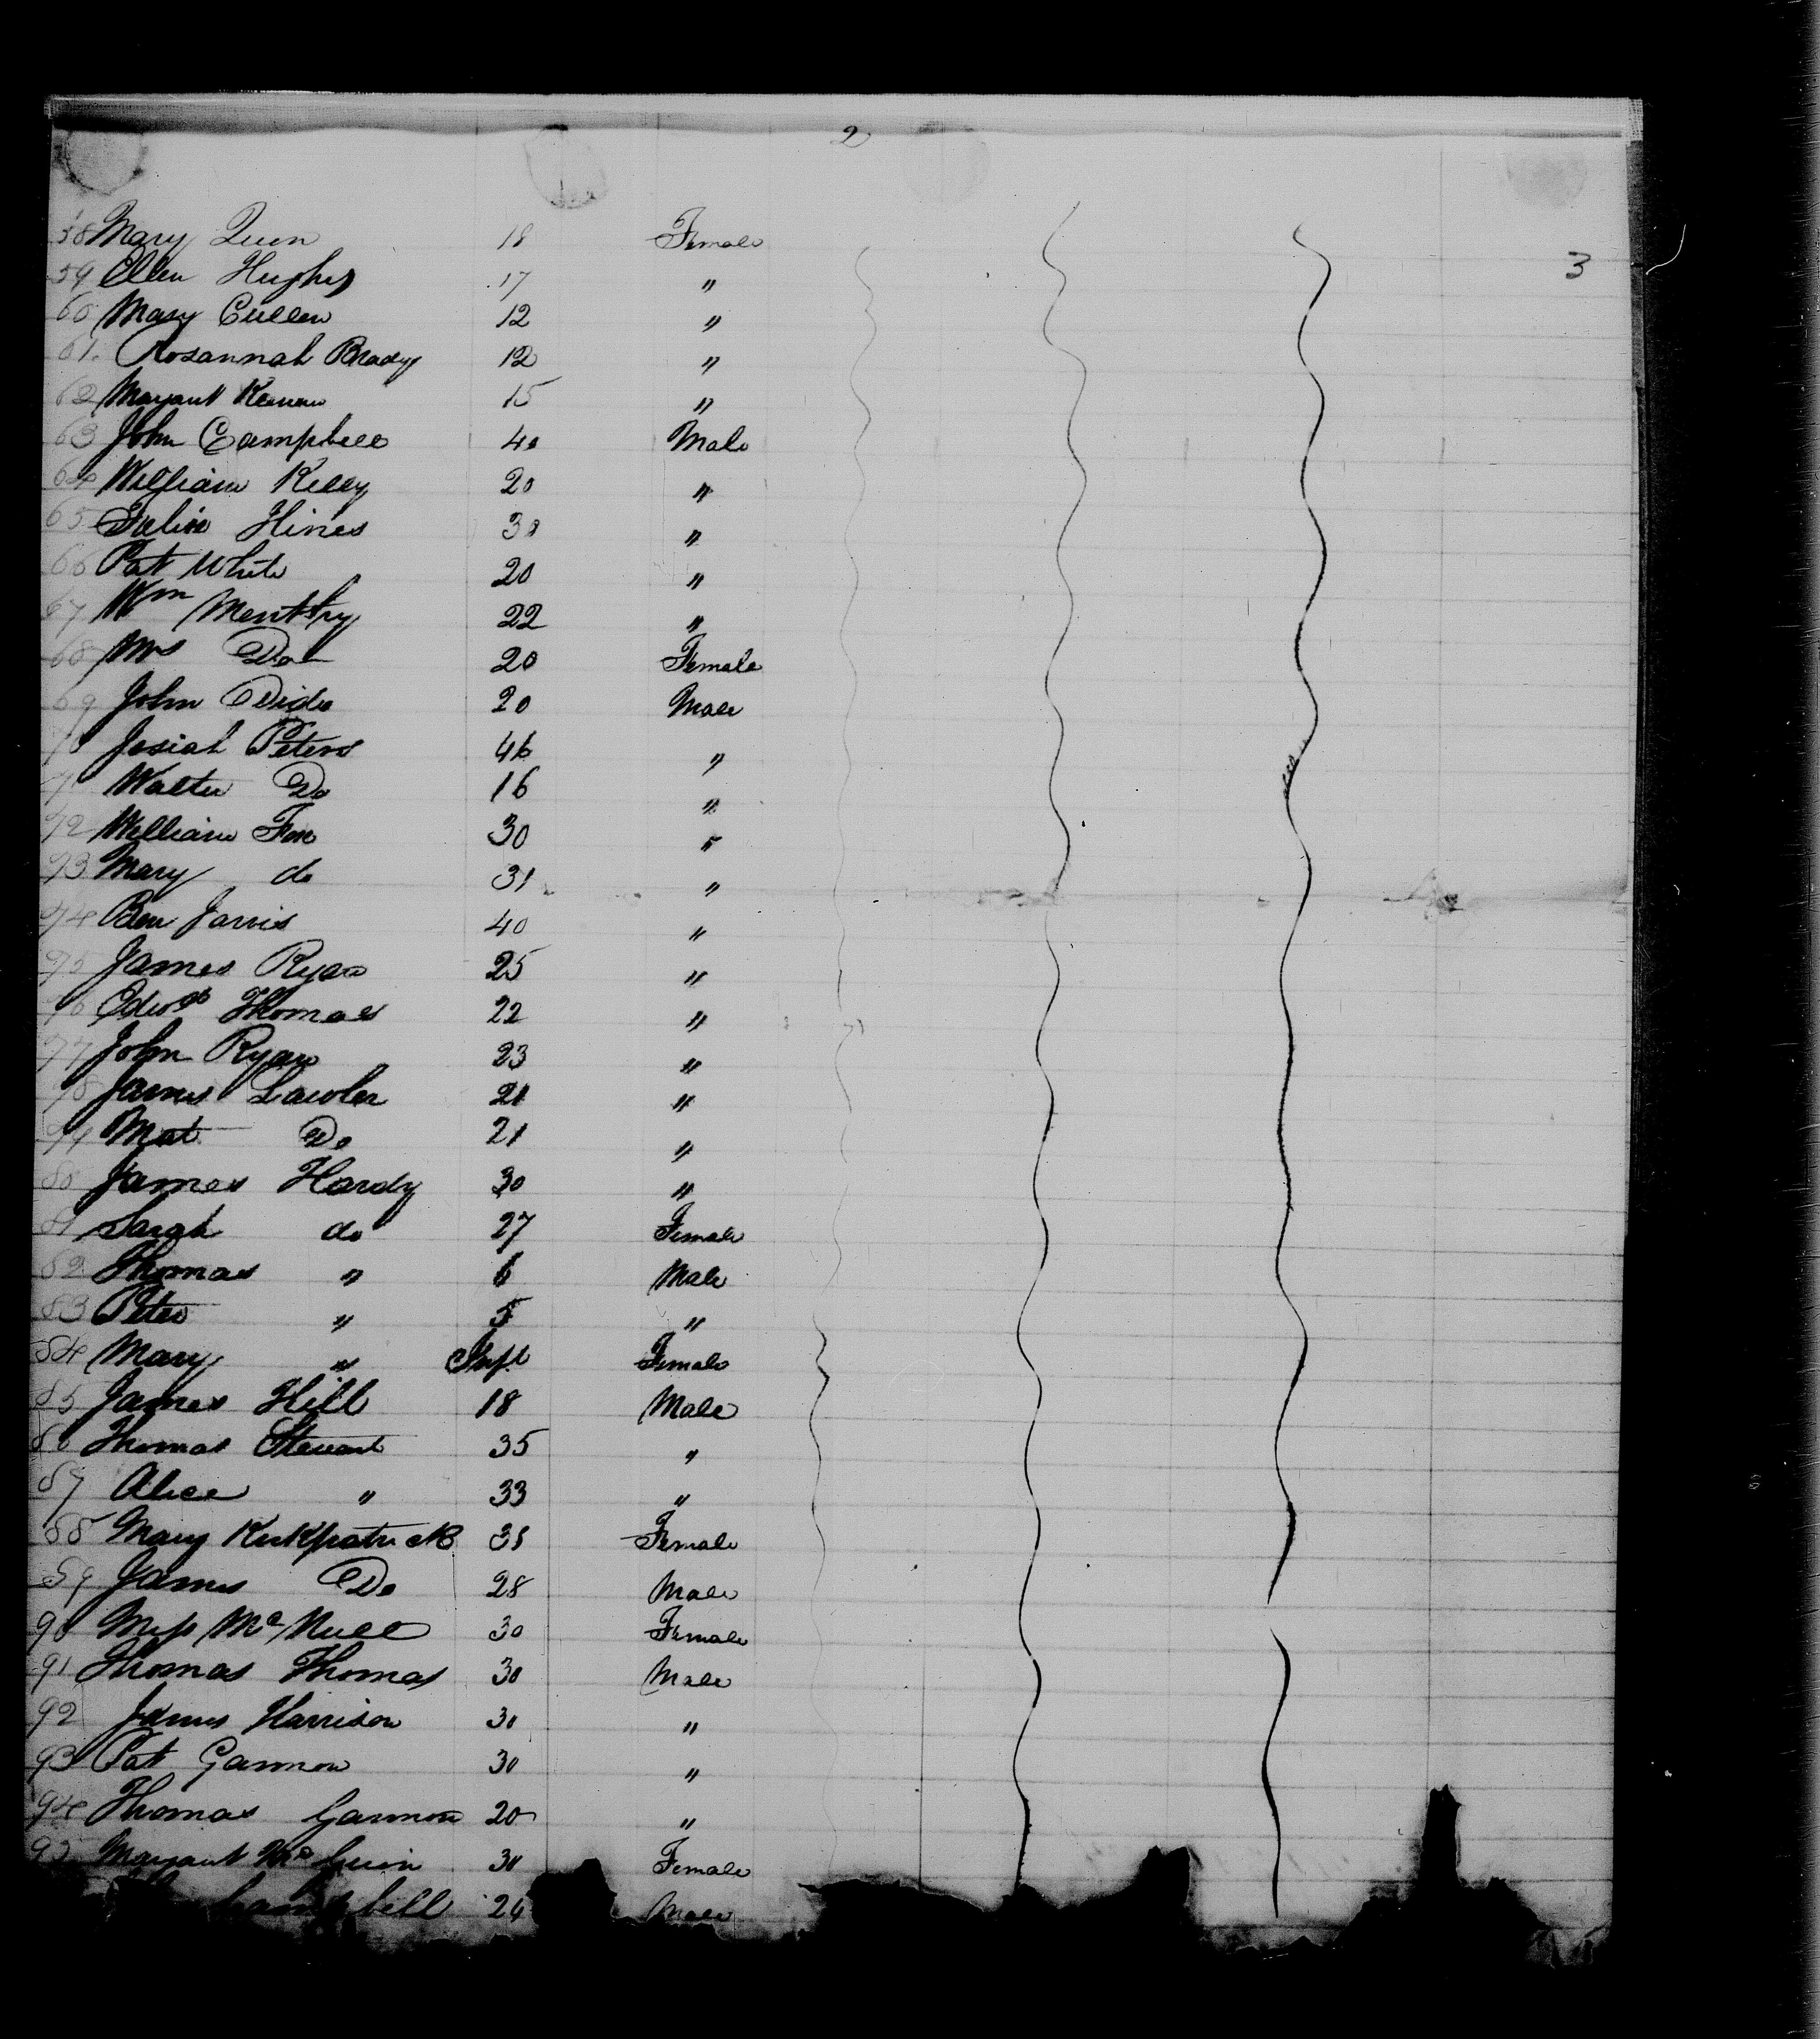 2
3
58 Mary Quin 18 Female
59 Ellen Hughes 17 "
60 Mary Cullen 12 "
61. Rosannah Brady 12 "
62 Margaret 15 "
63 John Campbell 40 Male
64 William Kelly 20 "
65 Hines 30 "
66 Pat White 20 "
67 Wm 22 "
68 Mrs Do 20 Female
69 John 20 Male
70 Josiah Peters 46 "
71 Walter Do 16 "
72 William Fox 30 "
73 Mary do 31 "
74 Ben Jarvis 40 "
75 James Ryan 25 "
76 Edwd Thomas 22 "
77 John Ryan 23 "
78 James Lawler 21 "
79 Mat Do 21 "
80 James Hardy 30 "
81 Sarah do 27 Female
82 Thomas " 6 Male
83 Peter " 5 "
84 Mary " Inft Female
85 James Hill 18 Male
86 Thomas Stewart 35 "
87 Alice " 33 "
88 Mary Kirkpatrick Female
89 James Do 28 Male
90 Miss 30 Female
91 Thomas Thomas 30 Male
92 James Harrison 30 "
93 Pat Gannon 30 "
94 Thomas Gannon 20 "
95 Margaret 30 Female
Campbell 24 Male